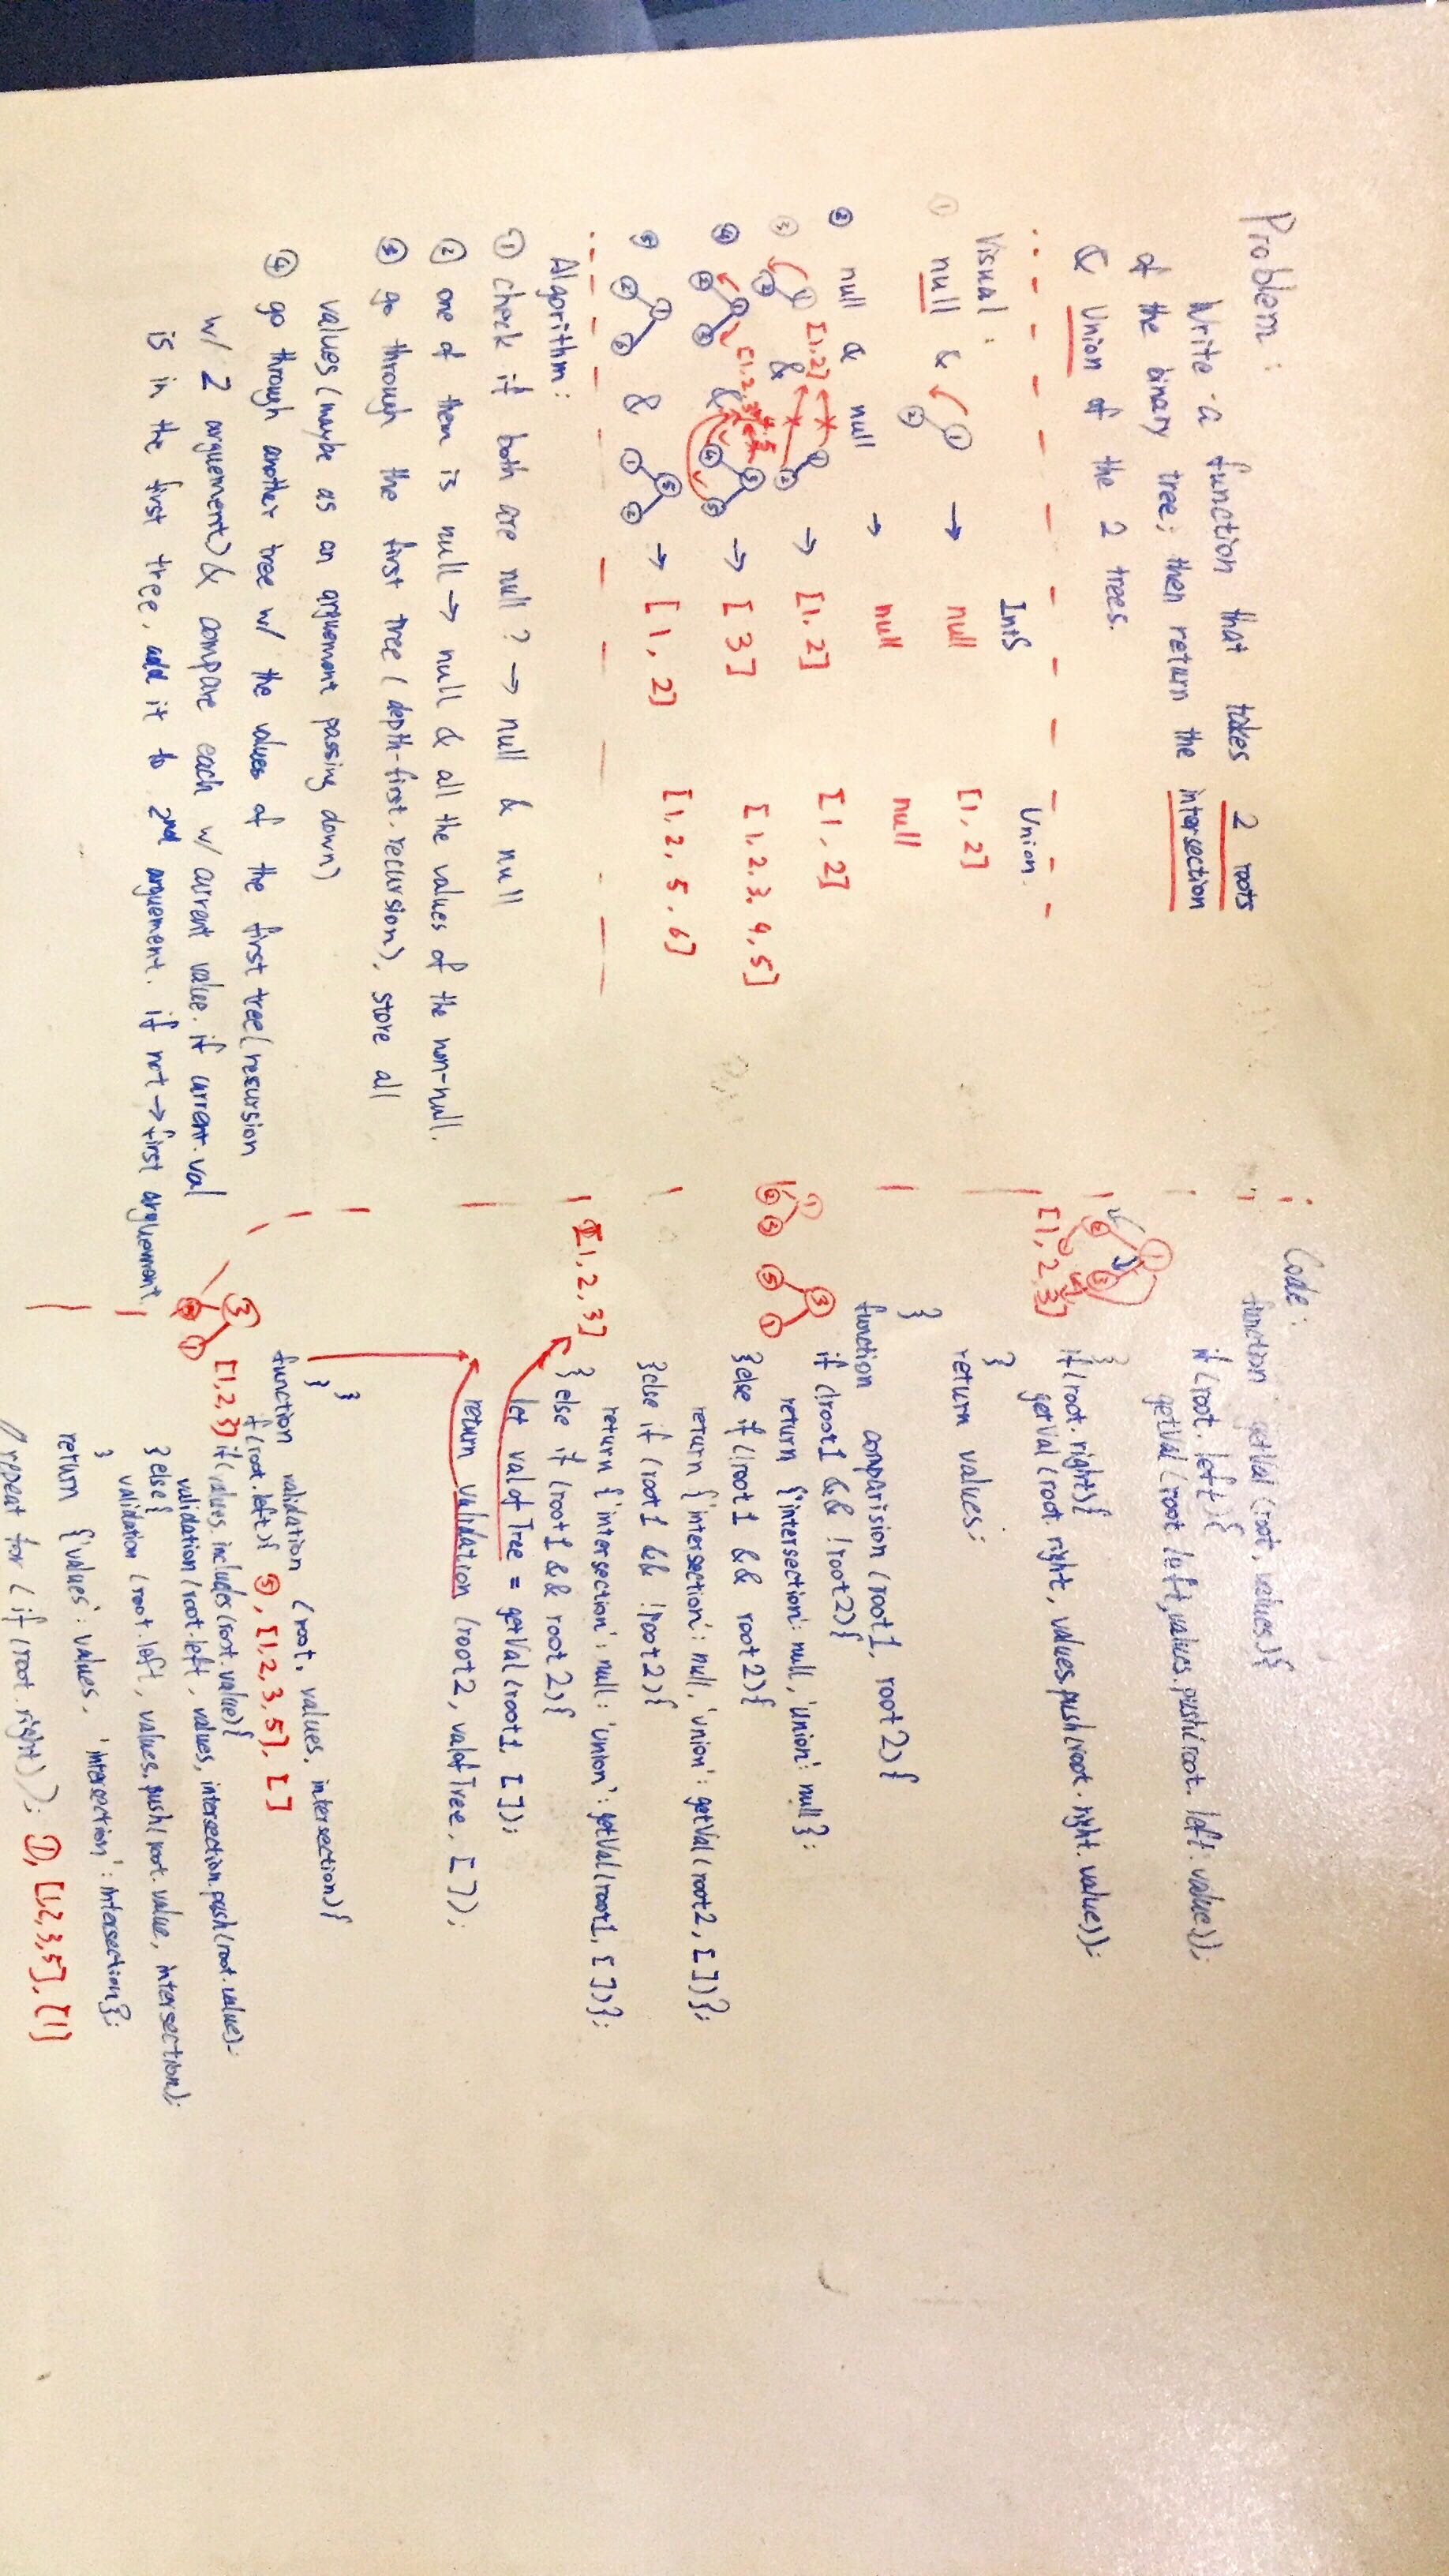 Problem:
Write a function that takes 2 roots
of the binary tree; then return the intersection
& Union of the 2 trees.
Visual: IntS Union.
① null & ① ② → null [1, 2]
② null & null → null null
③ ① ② [1,2] & ① ② → [1, 2] [1, 2]
④ & → [3] [1, 2, 3, 4, 5]
⑤ & → [1, 2] [1, 2, 5, 6]
Algorithm:
① check if both are null? → null & null
② one of them is null → null & all the values of the non-null.
③ go through the first tree (depth-first. recursion), store all
values (maybe as an arguement passing down)
④ go through another tree w/ the values of the first tree (resursion
w/ 2 arguement) & compare each w/ current value. if current.val
is in the first tree, add it to 2nd arguement. if not → first arguement.
Code:
function getVal (root, values){
if (root.left){
getVal (root.left, values.push(root.left.value));
}
if (root.right){
getVal (root.right, values.push(root.right.value));
}
return values;
}
[1, 2, 3]
function comparision (root1, root2){
if (!root1 && !root2){
return {'intersection': null, 'union': null};
}else if (!root1 && root2){
return {'intersection': null, 'union': getVal (root2, [])};
}else if (root1 && !root2){
return {'intersection': null: 'union': getVal (root1, [])};
} else if (root1 && root2){
let valofTree = getVal (root1, []);
return validation (root2, valofTree, []);
}
}
[1, 2, 3]
function validation (root, values, intersection){
if (root.left){ ⑤, [1, 2, 3, 5], []
[1, 2, 3] if (values.includes(root.value){
validation (root.left, values, intersection.push(root.value);
}else{
validation (root.left, values.push(root.value, intersection);
}
return {'values': values, 'intersection': intersection};
//repeat for (if (root.right)); ①, [1,2,3,5], [1]